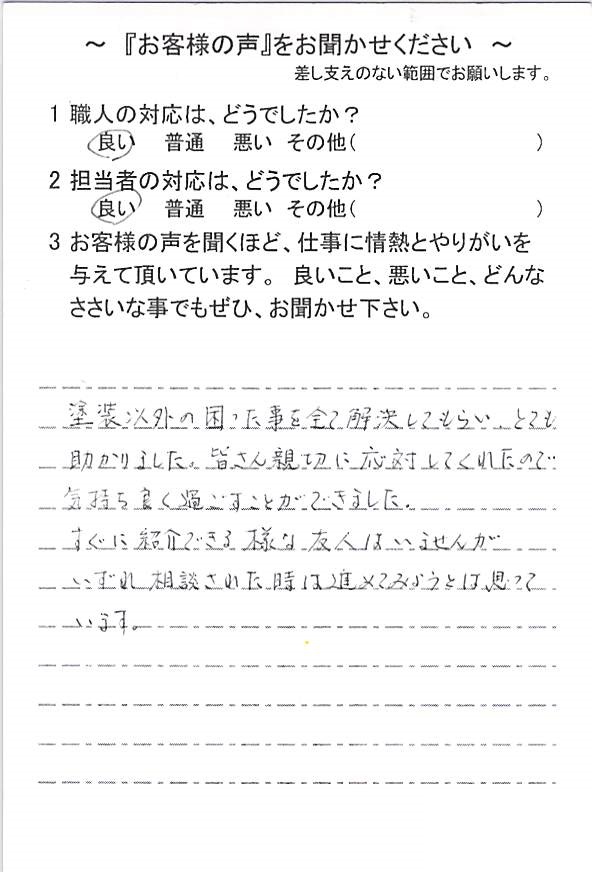 ～ 『お客様の声』をお聞かせください ～
差し支えのない範囲でお願いします。
1 職人の対応は、どうでしたか？
良い 普通 悪い その他( )
2 担当者の対応は、どうでしたか？
良い 普通 悪い その他( )
3 お客様の声を聞くほど、仕事に情熱とやりがいを
与えて頂いています。 良いこと、悪いこと、どんな
ささいな事でもぜひ、お聞かせ下さい。
塗装以外の困った事を全て解決してもらい、とても
助かりました。皆さん親切に応対してくれたので
気持ち良く過ごすことができました。
すぐに紹介できる様な友人はいませんが
いずれ相談された時は進めてみようとは思って
います。